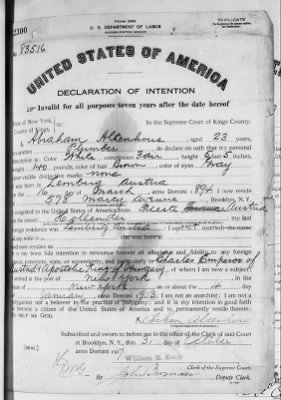 TRIPLICATE
U. S. DEPARTMENT OF LABOR
No. 83516
UNITED STATES OF AMERICA
DECLARATION OF INTENTION
Invalid for all purposes seven years after the date hereof
State of New York,
County of Kings,
In the Supreme Court of Kings County.
I, Abraham aged 23 years,
occupation Plumber do declare on oath that my personal
description is: Color White, complexion Fair, height 5 feet 5 inches,
weight 140 pounds, color of hair Brown, color of eyes
other visible distinctive marks none
was born in Lemberg Austria
on the 16 day of March, anno Domini 1894; I now reside
at 578 Marcy Avenue, Brooklyn, N. Y.
I emigrated to the United States of America from Austria
my last
foreign residence was Lemberg Austria; I am not married; the name
was born in
It is my bona fide intention to renounce forever all allegiance and fidelity to any foreign
prince, potentate, state, or sovereignty, and particularly to Charles Emperor of
Austria & Apostolic King of Hungary, of whom I am now a subject;
I arrived at the port of New York, in the
State of New York, on or about the 4 day
of January, anno Domini 1913; I am not an anarchist; I am not a
polygamist nor a believer in the practice of polygamy; and it is my intention in good faith
to become a citizen of the United States of America and to permanently reside therein:
SO HELP ME GOD.
Subscribed and sworn to before me in the office of the Clerk of said Court
at Brooklyn, N. Y., this 31 day of October
[SEAL] anno Domini 1917
William E. Kelly
Clerk of the Supreme Court.
By Deputy Clerk.